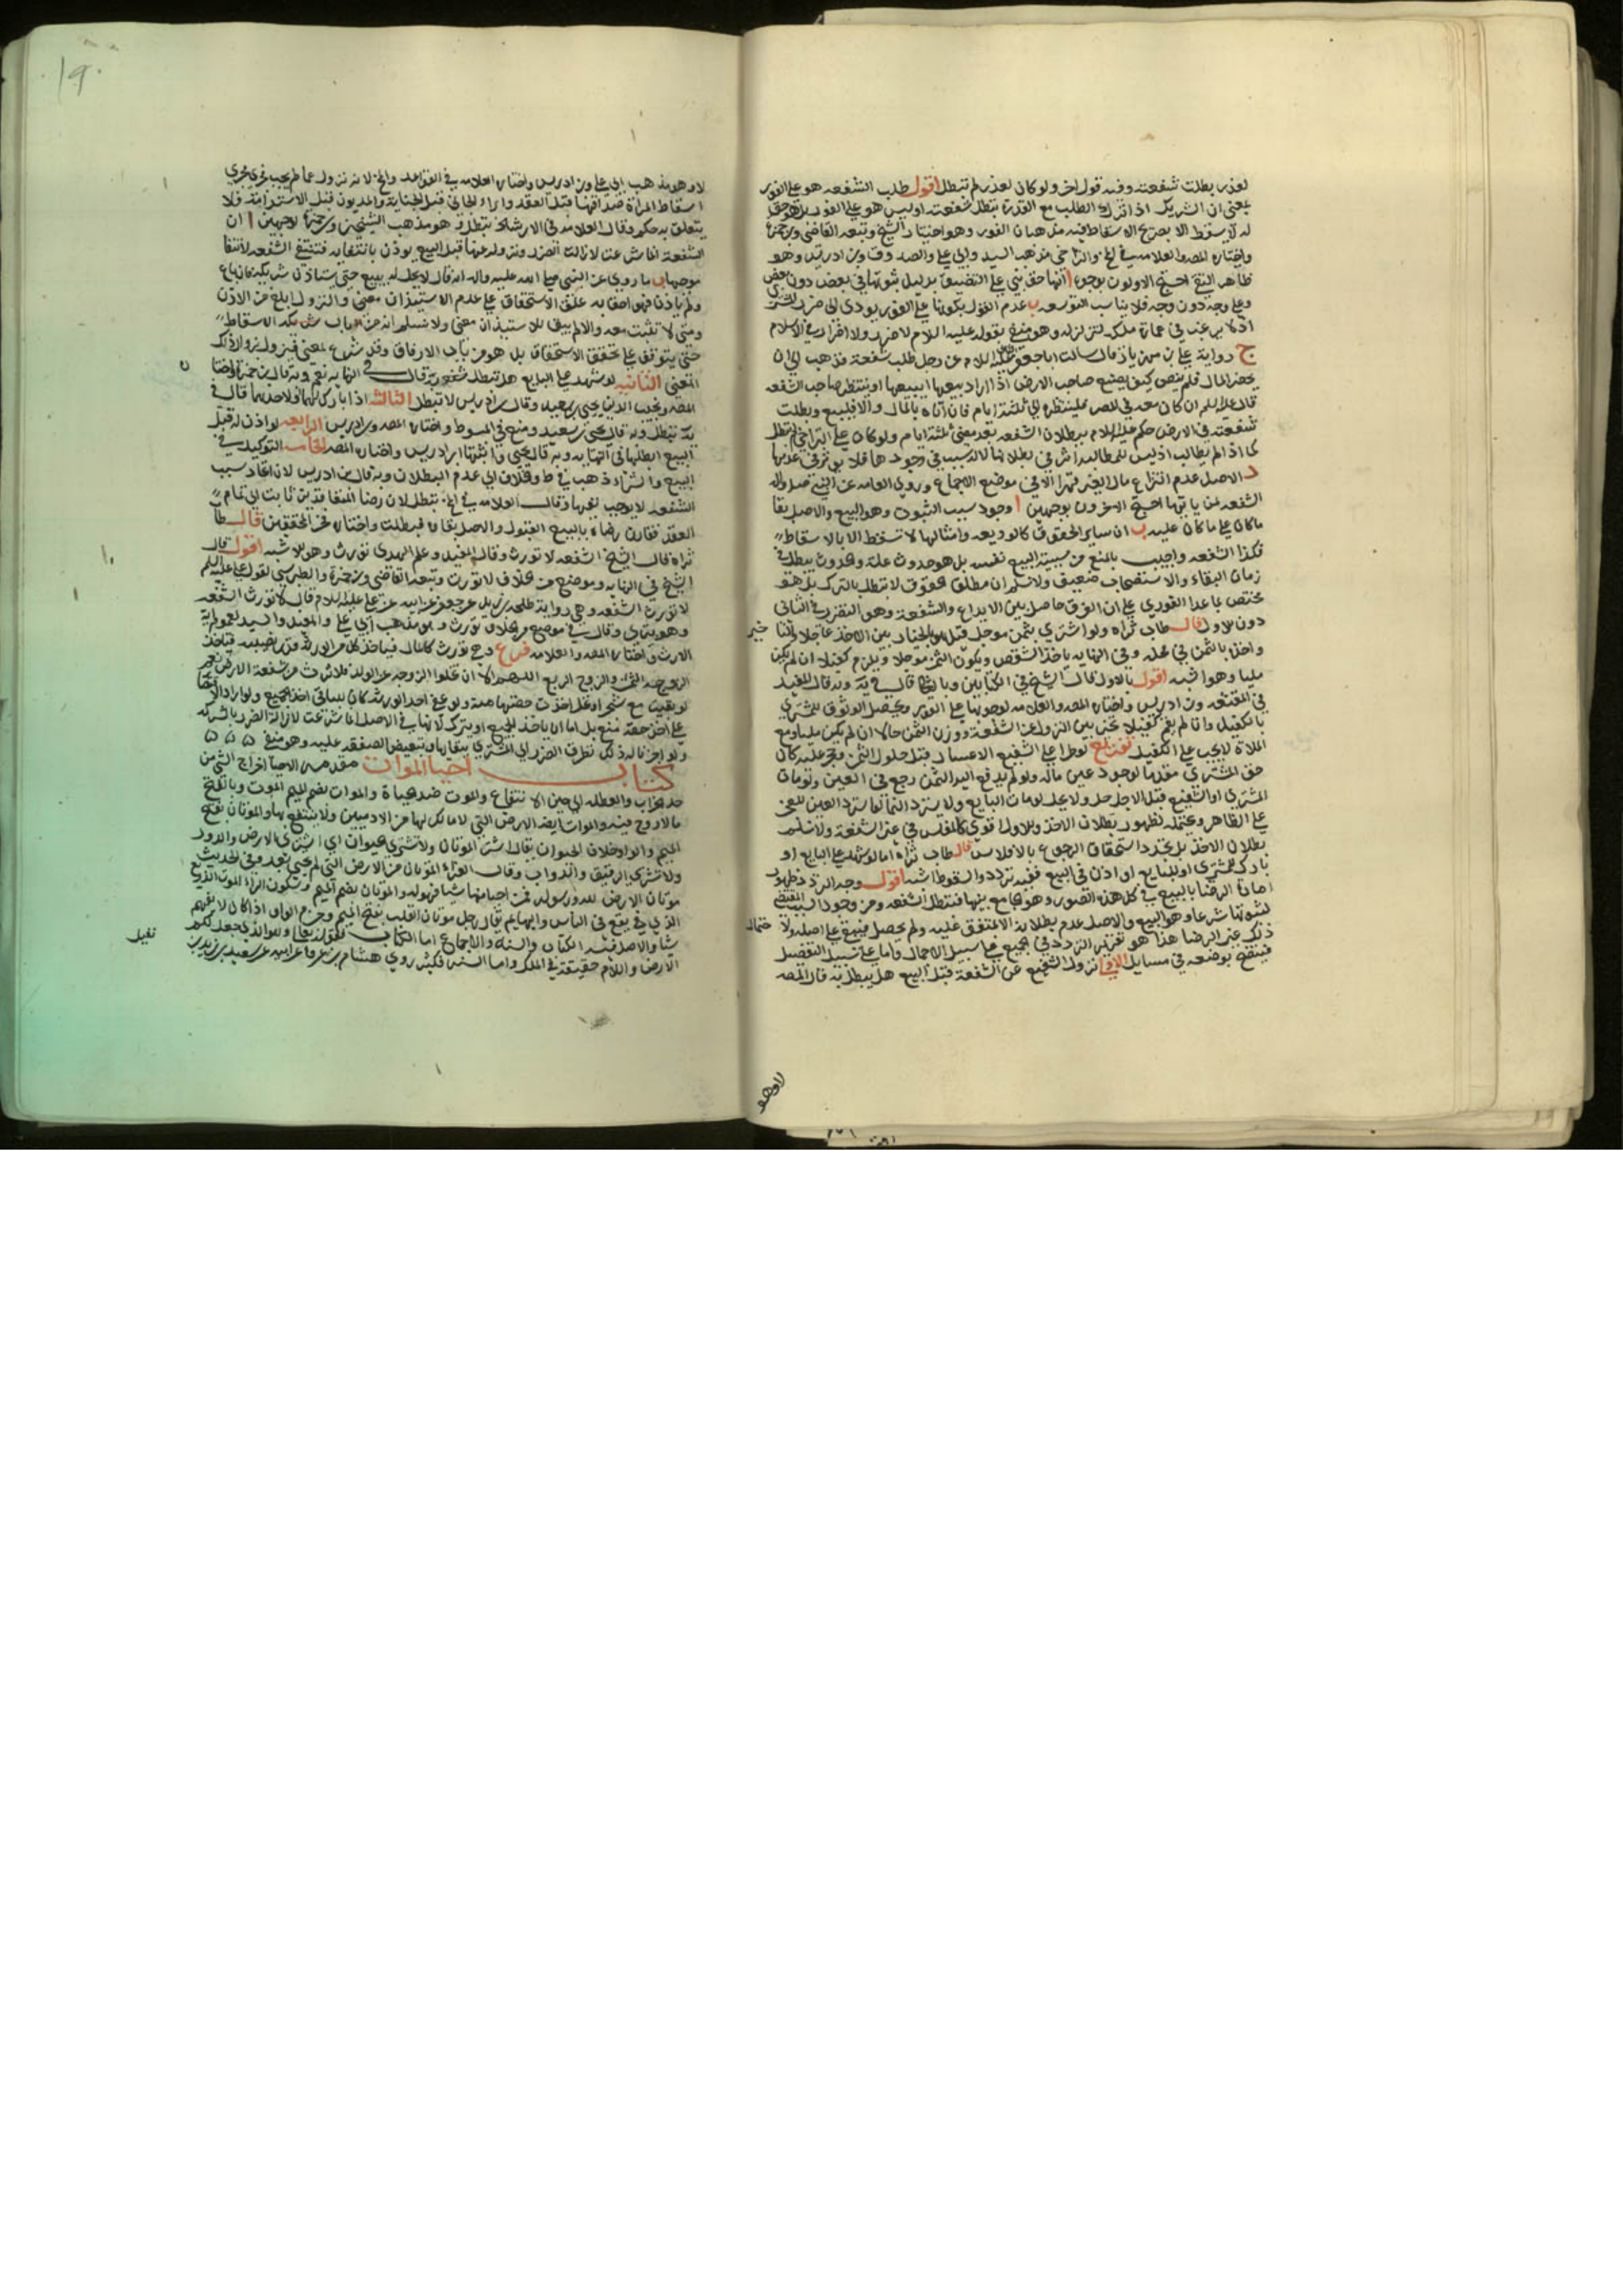 لعذر بطلت شفعته وفيه قول اخر ولو كان لعذر لم تبطل اقول طلب الشفعه هو على الفور
بمعنى ان الشريك اذا ترك الطلب مع القدرة تبطل شفعته او ليس هو على الفور بل هو حق
له لا يسقط الا بصريح الاسقاط فيه مذهبان الفور وهو اختيار الشيخ وتبعه القاضي وبن حمزة
واختاره المصه والعلامه في والتراخي مذهب السيد وابي علي والصدوق وبن ادريس وهو
ظاهر التقي احتج الاولون بوجوه ا انها حق بني على التضييق بدليل ثبوتها في بعض دون بعض
وعلى وجه دون وجه فلا يناسب التوسعه ب عدم القول بكونها على الفور يودي الى ضرر المشتري
اذ لا يرغب في عمارة ملكه لتزلزله وهو منفي بقوله عليه السلام لا ضرر ولا اضرار في الاسلام
ج رواية علي بن مهزيار قال سالت ابا جعفر عليه السلام عن رجل طلب شفعة فذهب الى ان
يحضر المال فلم ينض كيف يصنع صاحب الارض اذا اراد بيعها ايبيعها او ينتظر صاحب الشفعه
قال عليه السلم ان كان معه في المصر فلينتظره الى ثلثة ايام فان اتاه بالمال والا فليبيع وبطلت
شفعته في الارض حكم عليه السلام ببطلان الشفعه بعد مضي ثلثة ايام ولو كان على التراخي لم تبطل
كما اذا لم يطالب اذ ليس للمطالبه اثر في بطلانها لانه سبب في وجودها فلا يوثر في عدمها
د الاصل عدم انتزاع مال الغير قهرا الا في موضع الاجماع وروى العامه عن النبي صلى الله
الشفعه لمن ياتيها احتج الاخرون بوجهين ا وجود سبب الثبوت وهو البيع والاصل بقا
ما كان على ما كان عليه ب ان ساير الحقوق كالوديعه وامثالها لا تسقط الا بالاسقاط
فكذا الشفعه واجيب بالمنع من سببية البيع نفسه بل هو حدوث علة وحدوث يبطل في
زمان البقاء والاستصحاب ضعيف ولا نسلم ان مطلق حقوق لا تبطل بالترك بل هو
مختص بما عدا الفوري على ان الفرق حاصل بين الايداع والشفعة وهو التضرر في الثاني
دون الاول قال طاب ثراه ولو اشتري بثمن موجل قيل هو بالخيار بين الاخذ عاجلا والتا خير
واخذه بالثمن في محله وفي النهايه ياخذ الشقص ويكون الثمن موجلا ويلزم كفيلا ان لم يكن
مليا وهو اشبه اقول بالاول قال الشيخ في الكتابين وبالثاني قال في يه وبه قال المفيد
في المقنعه وبن ادريس واختاره المصه والعلامه لوجوبها على الفور ويحصل الوثوق للمشتري
بالكفيل وان لم يقم كفيلا تخير بين النزول عن الشفعة ووزن الثمن حالا ان لم يكن مليا ومع
الملاة لا يجب على الكفيل تفريع لو طرا على الشفيع الاعسار قبل حلول الثمن وحجر عليه كان
حق المشتري مقدما لوجود عين ماله ولو لم يدفع اليه الثمن رجع في العين ولو مات
المشتري او الشفيع قبل الاجل حل ولا يحل لو مات البايع ولا يسترد النما لو استرد العين للعجز
على الظاهر ويحتمله لظهور بطلان الاخذ والاول اقوى كالمفلس في غير الشفعة ولا نسلم
بطلان الاخذ بل تجدد استحقاق الرجوع بالافلاس قال طاب ثراه اما لو شهد على البايع او
بارك للمشتري او للبايع او اذن في البيع ففيه تردد والسقوط اشبه اقول وجه التردد ظهور
امارة الرضا بالبيع في كل هذه الصور وهو جامع بينها فتبطل الشفعه ومن وجود السبب المقتضي
لثبوتها شرعا وهو البيع والاصل عدم بطلانه الا بمتفق عليه ولم يحصل فيبقى على اصله ولا حتمال
ذلك غير الرضا هذا هو تقرير التردد في الجميع على سبيل الاجمال واما على سبيل التفصيل
فيتضح بوضعه في مسايل الاولى نزول الشفيع عن الشفعة قبل البيع هل يبطل به قال المصه
لا وهو
١٩٠
لا وهو مذهب ابي علي وبن ادريس واختاره العلامه في القواعد ولانه نزول عما لم يجب فيجري مجرى
اسقاط المراة صداقها قبل العقد وابراء الجاني قبل الجناية والمديون قبل الاستدانة فلا
يتعلق به حكم وقال العلامه في الارشاد تبطل وهو مذهب الشيخين وبن حمزة لوجهين ا ان
الشفعة انما شرعت لازالة الضرر ونزوله عنها قبل البيع يوذن بانتفايه فتنتفي الشفعه لانتفا
موجبها ب ما روي عن النبي صلى الله عليه واله انه قال لا يحل له يبيع حتى يستاذن شريكه فان باع
ولم ياذن فهو احق به علق الاستحقاق على عدم الاستيذان معنى والنزول ابلغ من الاذن
ومتى لا تثبت معه والا لم يبق للاستيذان معنى ولا نسلم انه من باب الاسقاط
حتى يتوقف على تحقق الاستحقاق بل هو من باب الارفاق وقد شرع لمعنى فيزول بزوال ذلك
المعنى الثانيه لو شهد على البايع هل تبطل شفعته قال في النهايه نعم وبه قال بن حمزة واختا ره
المصه ونجيب الدين يحيى بن سعيد وقال بن ادريس لا تبطل الثالثة اذا بارك لهما او لاحدهما قال في
يه تبطل وبه قال يحيى بن سعيد ومنع في المبسوط واختاره المصه وبن ادريس الرابعه لو اذن له قبل
البيع ابطلها في النهايه وبه قال يحيى واثبتها ابن ادريس واختاره المصه الخامسه التوكيل في
البيع والشراء ذهب في ط والخلاف الى عدم البطلان وبه قال بن ادريس لان ايجاد سبب
الشفعه لا يوجب نفيها وقال العلامه في تبطل لان رضا المتعاقدين ثابت الى تمام
العقد فقارن رضاه بالبيع القبول والاصل بقاه فبطلت واختاره فخر المحققين قال طاب
ثراه قال الشيخ الشفعه لا تورث وقال المفيد وعلم الهدى تورث وهو الاشبه اقول قال
الشيخ في النهايه وموضع من الخلاف لا تورث وتبعه القاضي وبن حمزة والطبرسي لقول علي عليه السلم
لا تورث الشفعه وهي رواية طلحه بن زيد عن جعفر عن ابيه عن علي عليه السلام قال لا تورث الشفعه
وهو بتري وقال في موضع من الخلاف تورث وهو مذهب ابي علي والمفيد والسيد لعموم اية
الارث واختاره المصه والعلامه فرع وح تورث كالمال فياخذ كل من الورثة قدر نصيبه فياخذ
الزوجه الثمن والزوج الربع اللهم الا ان تخلوا الزوجه عن الولد فلا ترث من شفعة الارض نعم
لو بيعت مع شجر او نخل اخذت حصتها منه ولو عفى احد الورثه كان للباقي اخذ الجميع ولو اراد الاقتصار
على اخذ حصته منع بل اما ان ياخذ الجميع او يترك لانها في الاصل انما شرعت لازالة الضرر بالشركه
ولو اجزنا له ذلك تطرق الضرر الى المشتري ببقايها وتبعيض الصفقه عليه وهو منفي
كتاب احيا الموات مقدمه الاحيا اخراج الشي من
حد الخراب والعطله الى حين الانتفاع والموت ضد الحياة والموات بضم الميم الموت وبالفتح
ما لا روح فيه والموات ايضا الارض التي لا مالك لها من الادميين ولا ينتفع بها والموتان بفتح
الميم والواو خلاف الحيوان يقال اشتر الموتان ولا تشتري الحيوان اي اشتري الارض والدور
ولا تشتري الرقيق والدواب وقال الفراء الموتان من الارض التي لم تحيى بعد وفي الحديث
موتان الارض لله ورسوله فمن احيا منها شيا فهو له والموتان بضم الميم وسكون الواو الموت الذريع
الذي يقع في الناس والبهايم يقال رجل موتان القلب بفتح الميم وجزم الواو اذا كان لا يفهم
شيا والاصل فيه الكتاب والسنة والاجماع اما الكتاب فقوله تعالى وهو الذي جعل لكم
الارض واللام حقيقة في الملك واما السنه فكثير روي هشام بن عروة عن ابيه عن سعيد بن زيد بن نفيل